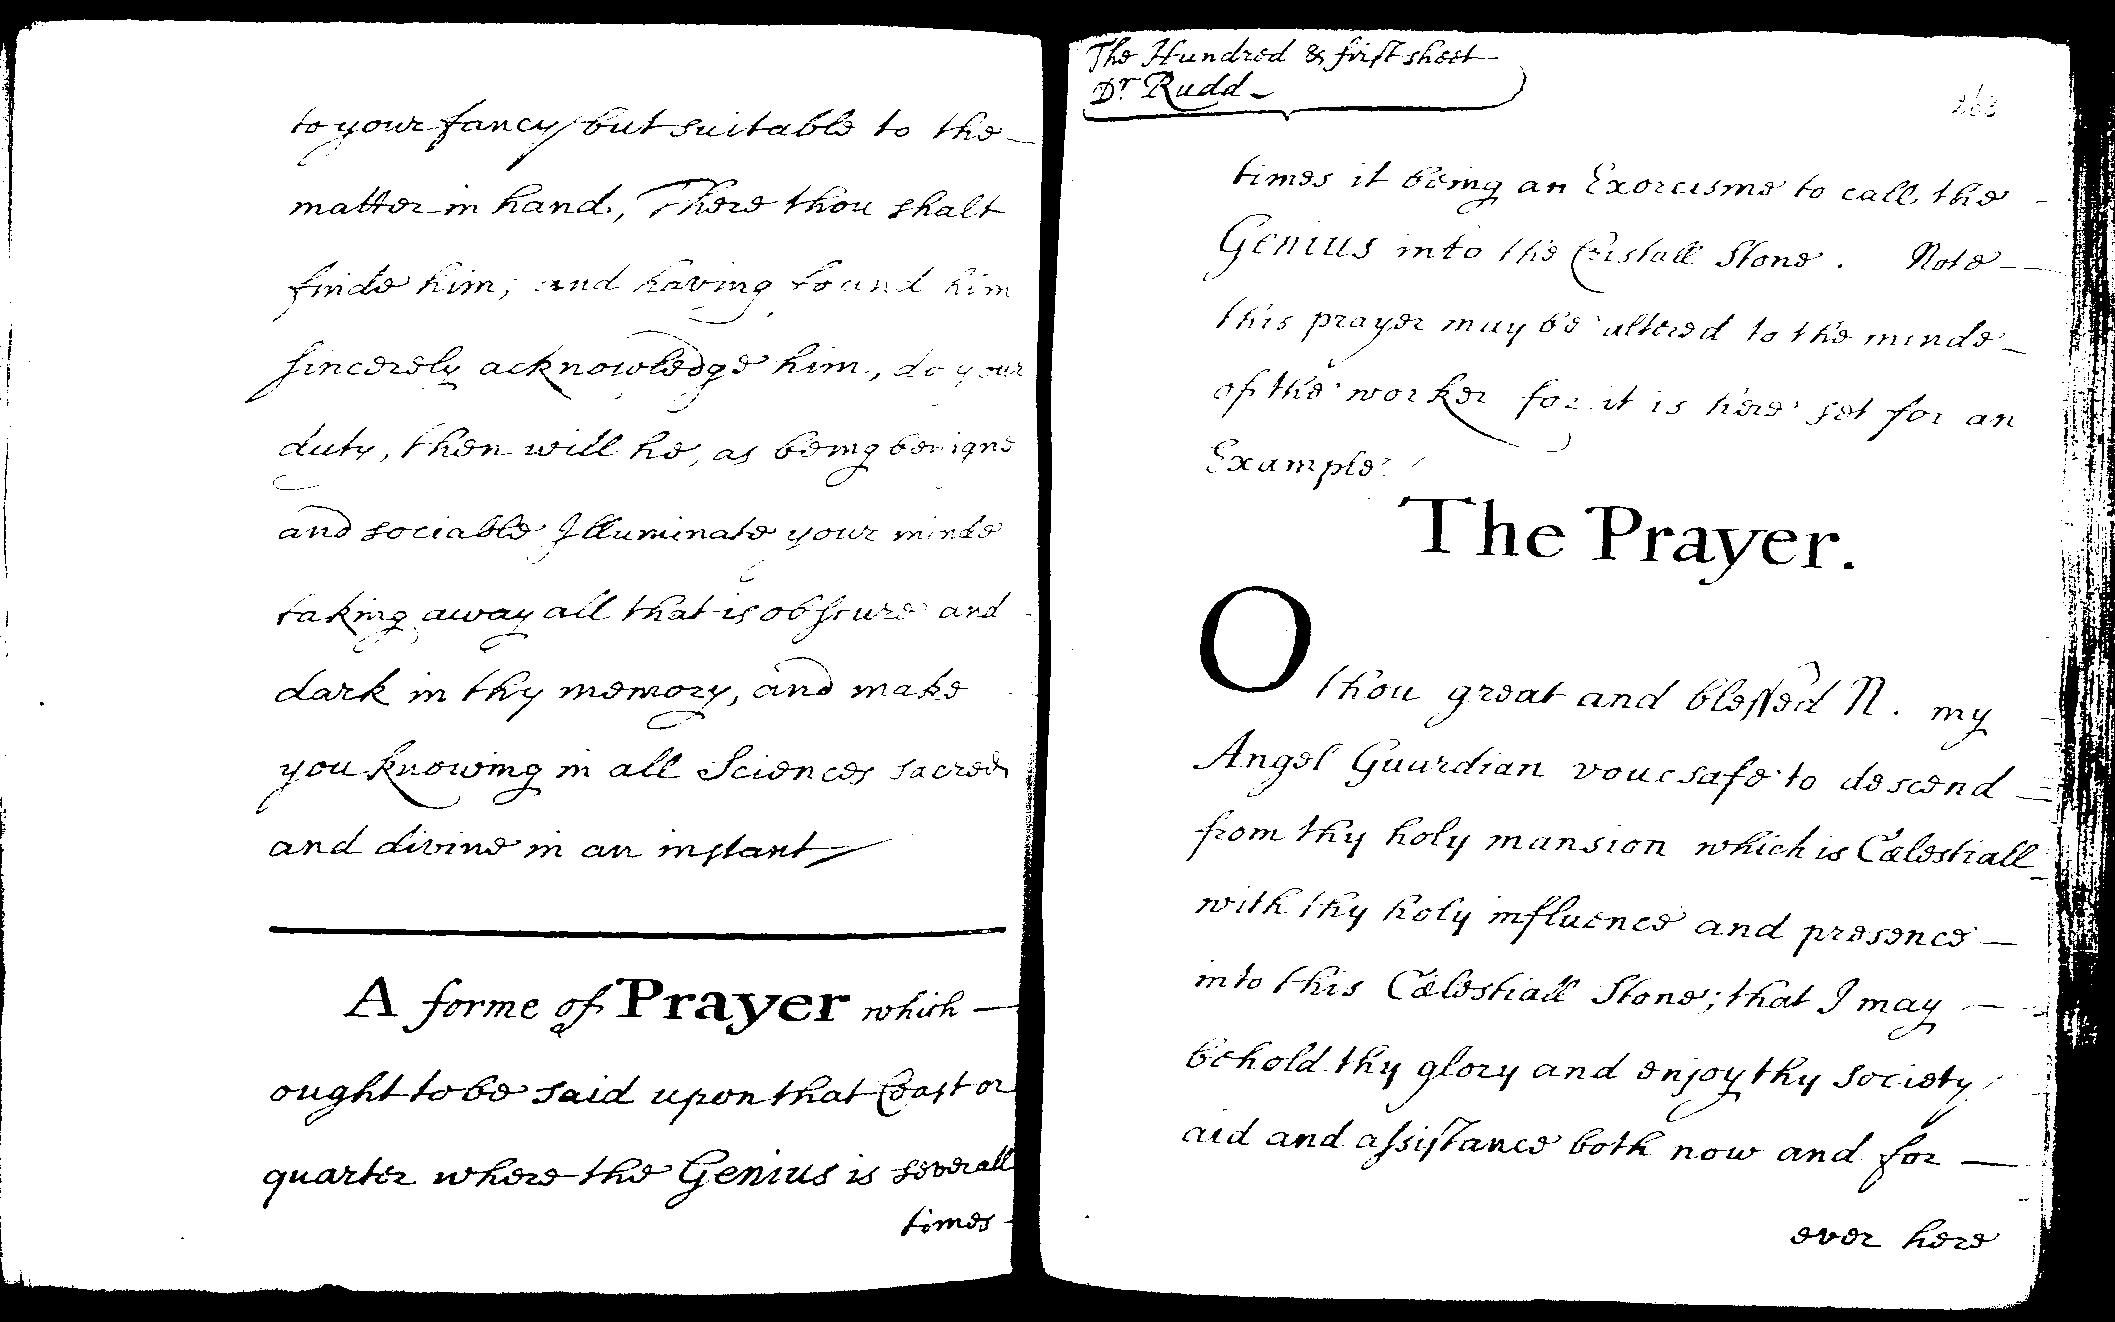 to your fancy but suitable to the
matter in hand, There thou shalt
finde him; and having found him
sincerely acknowledge him, do your
duty, then will he, as being benigne
and sociable Illuminate your minde
taking away all that is obscure and
dark in thy memory, and make
you knowing in all Sciences sacred
and divine in an instant
A forme of Prayer which
ought to be said upon that Coast or
quarter where the Genius is severall
times
The Hundred & first sheet
Dr Rudd
263
times it being an Exorcisme to call the
Genius into the Cristall Stone. Note
this prayer may be altered to the minde
of the worker for it is here set for an
Example.
The Prayer.
O thou great and blessed N. my
Angel Guardian voucsafe to descend
from thy holy mansion which is Cælestiall
with thy holy influence and presence
into this Cælestiall Stone; that I may
behold thy glory and enjoy thy society,
aid and assistance both now and for
ever here